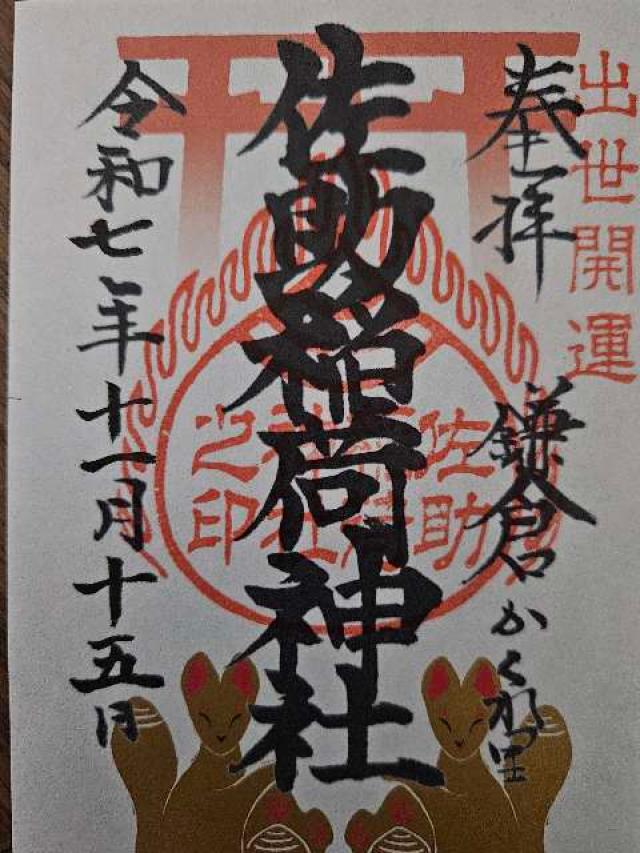 出世開運
奉拝
鎌倉かくれ里
佐助稲荷神社
佐助稲荷神社之印
令和七年十一月十五日